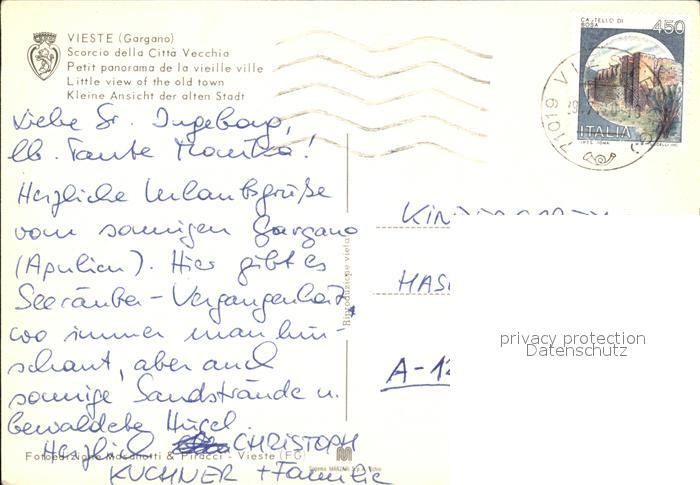 VIESTE (Gargano)
Scorcio della Città Vecchia
Petit panorama de la vieille ville
Little view of the old town
Kleine Ansicht der alten Stadt
CASTELLO DI
ROSA
450
ITALIA
71019 VIESTE
Liebe Sr. Ingeborg,
lb. Tante Moritza!
Herzliche Urlaubsgrüße
vom sonnigen Gargano
(Apulien). Hier gibt es
Seeräuber-Vergangenheit,
wo immer man hin-
schaut, aber auch
sonnige Sandstrände u.
bewaldete Hügel.
Herzlich CHRISTOPH
KUCHNER + Familie
HAS
A-12
privacy protection
Datenschutz
Riproduzione vietata
Fotoedizione Masanotti & Piracci - Vieste (FG)